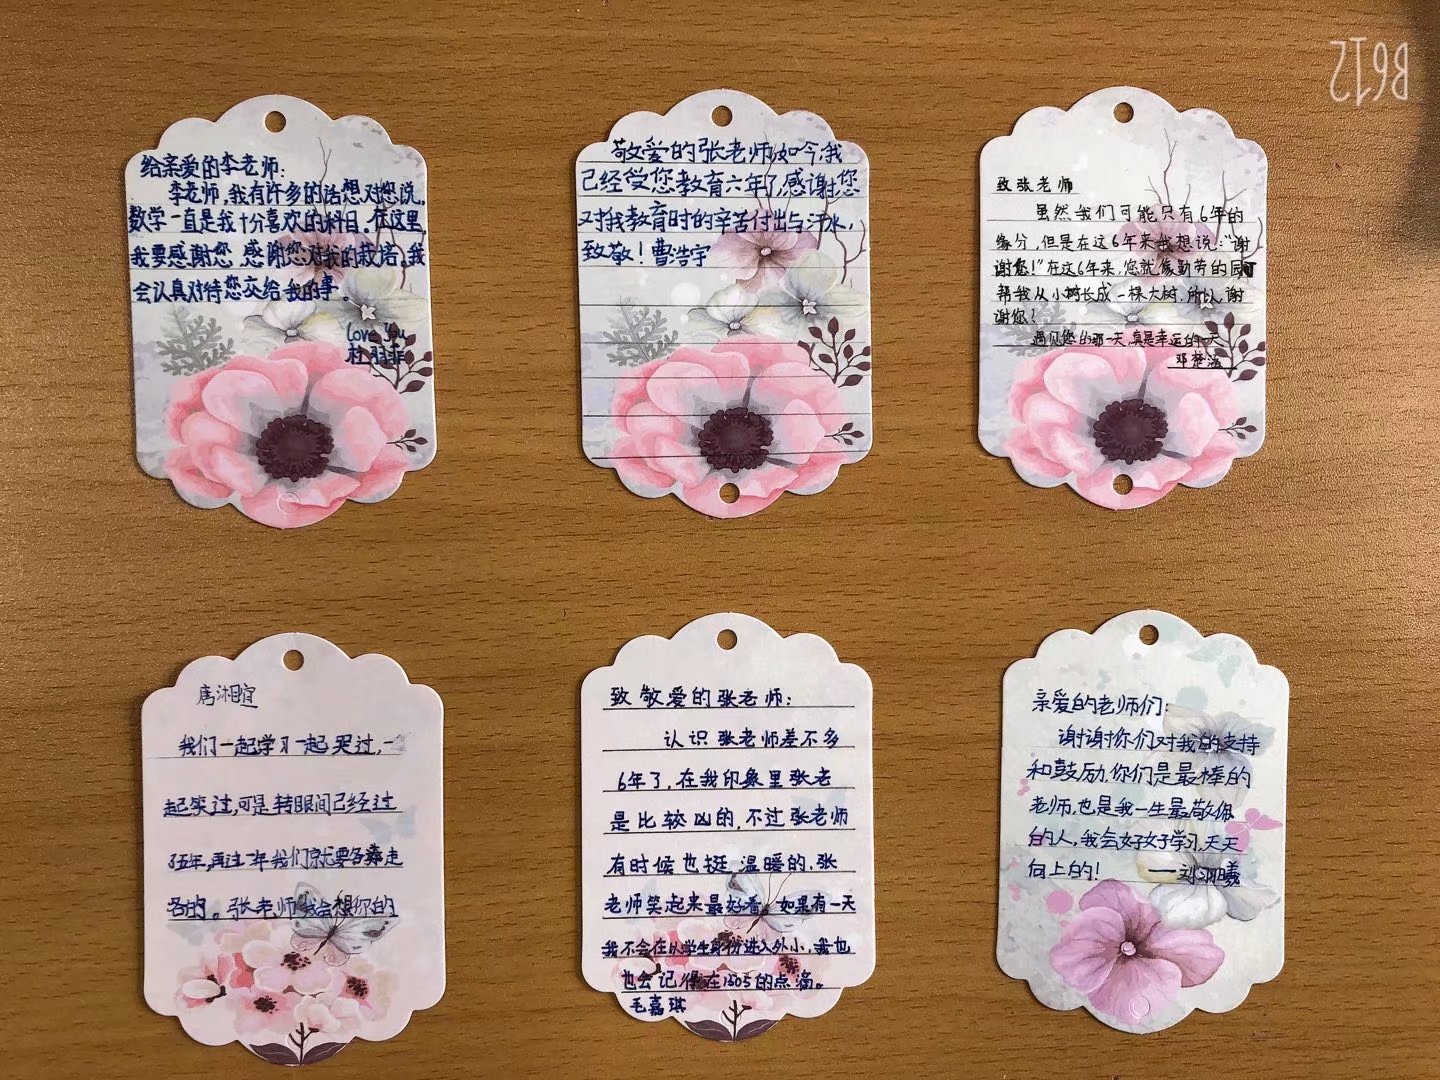 给亲爱的李老师:
李老师,我有许多的话想对您说。
数学一直是我十分喜欢的科目。在这里,
我要感谢您,感谢您对我的栽培。我
会认真对待您交给我的事。
Love You
杜
敬爱的张老师,如今,我
己经受您教育六年了,感谢您
对我教育时的辛苦付出与汗水,
致敬!曹浩宇
致张老师
虽然我们可能只有6年的
缘分,但是在这6年来我想说:“谢
谢您!”在这6年来,您就像勤劳的园丁
帮我从小树长成一棵大树.所以,谢
谢您!
遇见您的那一天,真是幸运的一天
邓楚涵
唐湘
我们一起学习一起哭过,一
起笑过,可是转眼间己经过
五年,再过一年我们就要各奔走
各的。张老师我会想你的
致敬爱的张老师:
认识张老师差不多
6年了,在我印象里张老
是比较凶的,不过张老师
有时候也挺温暖的,张
老师笑起来最好看,如果有一天
我不会在以学生身份进入外小,我也
也会记得在1505的点滴。
毛嘉琪
亲爱的老师们:
谢谢你们对我的支持
和鼓励,你们是最棒的
老师,也是我一生最敬佩
的人,我会好好学习,天天
向上的!——刘洳曦
B612